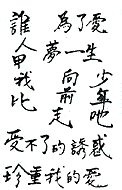 誰人甲我比
為了愛
夢一生
向前走
少年吧
受不了的誘惑
珍重我的愛